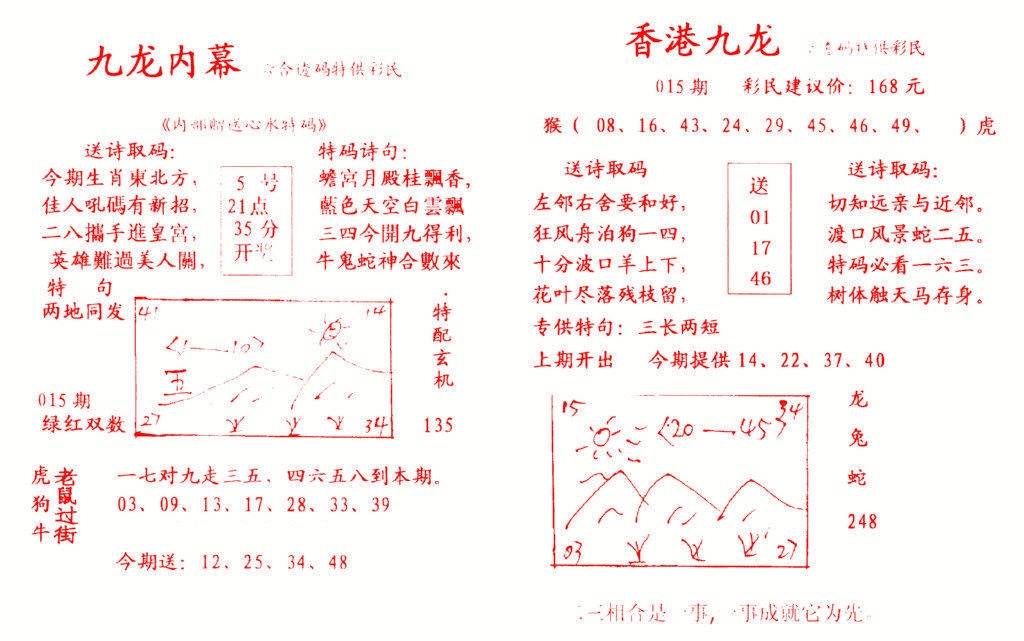 九龙内幕 六合造码特供彩民
《内部赠送心水特码》
送诗取码:
今期生肖東北方,
佳人吼碼有新招,
二八攜手進皇宮,
英雄難過美人關,
特 句
两地同发
5 号
21点
35分
开奖
特码诗句:
蟾宮月殿桂飄香,
藍色天空白雲飄
三四今開九得利,
牛鬼蛇神合數來
41 14
<1—10>
五
27 34
特配玄机
135
015期
绿红双数
虎狗牛
老鼠过街
一七对九走三五、四六五八到本期。
03、09、13、17、28、33、39
今期送:12、25、34、48
香港九龙 造码特供彩民
015期 彩民建议价:168元
猴( 08、16、43、24、29、45、46、49、 )虎
送诗取码
左邻右舍要和好,
狂风舟泊狗一四,
十分波口羊上下,
花叶尽落残枝留,
送
01
17
46
送诗取码:
切知远亲与近邻。
渡口风景蛇二五。
特码必看一六三。
树体触天马存身。
专供特句:三长两短
上期开出 今期提供14、22、37、40
15 34
<20—45>
03 27
龙
兔
蛇
248
二三相合是一事,一事成就它为先。